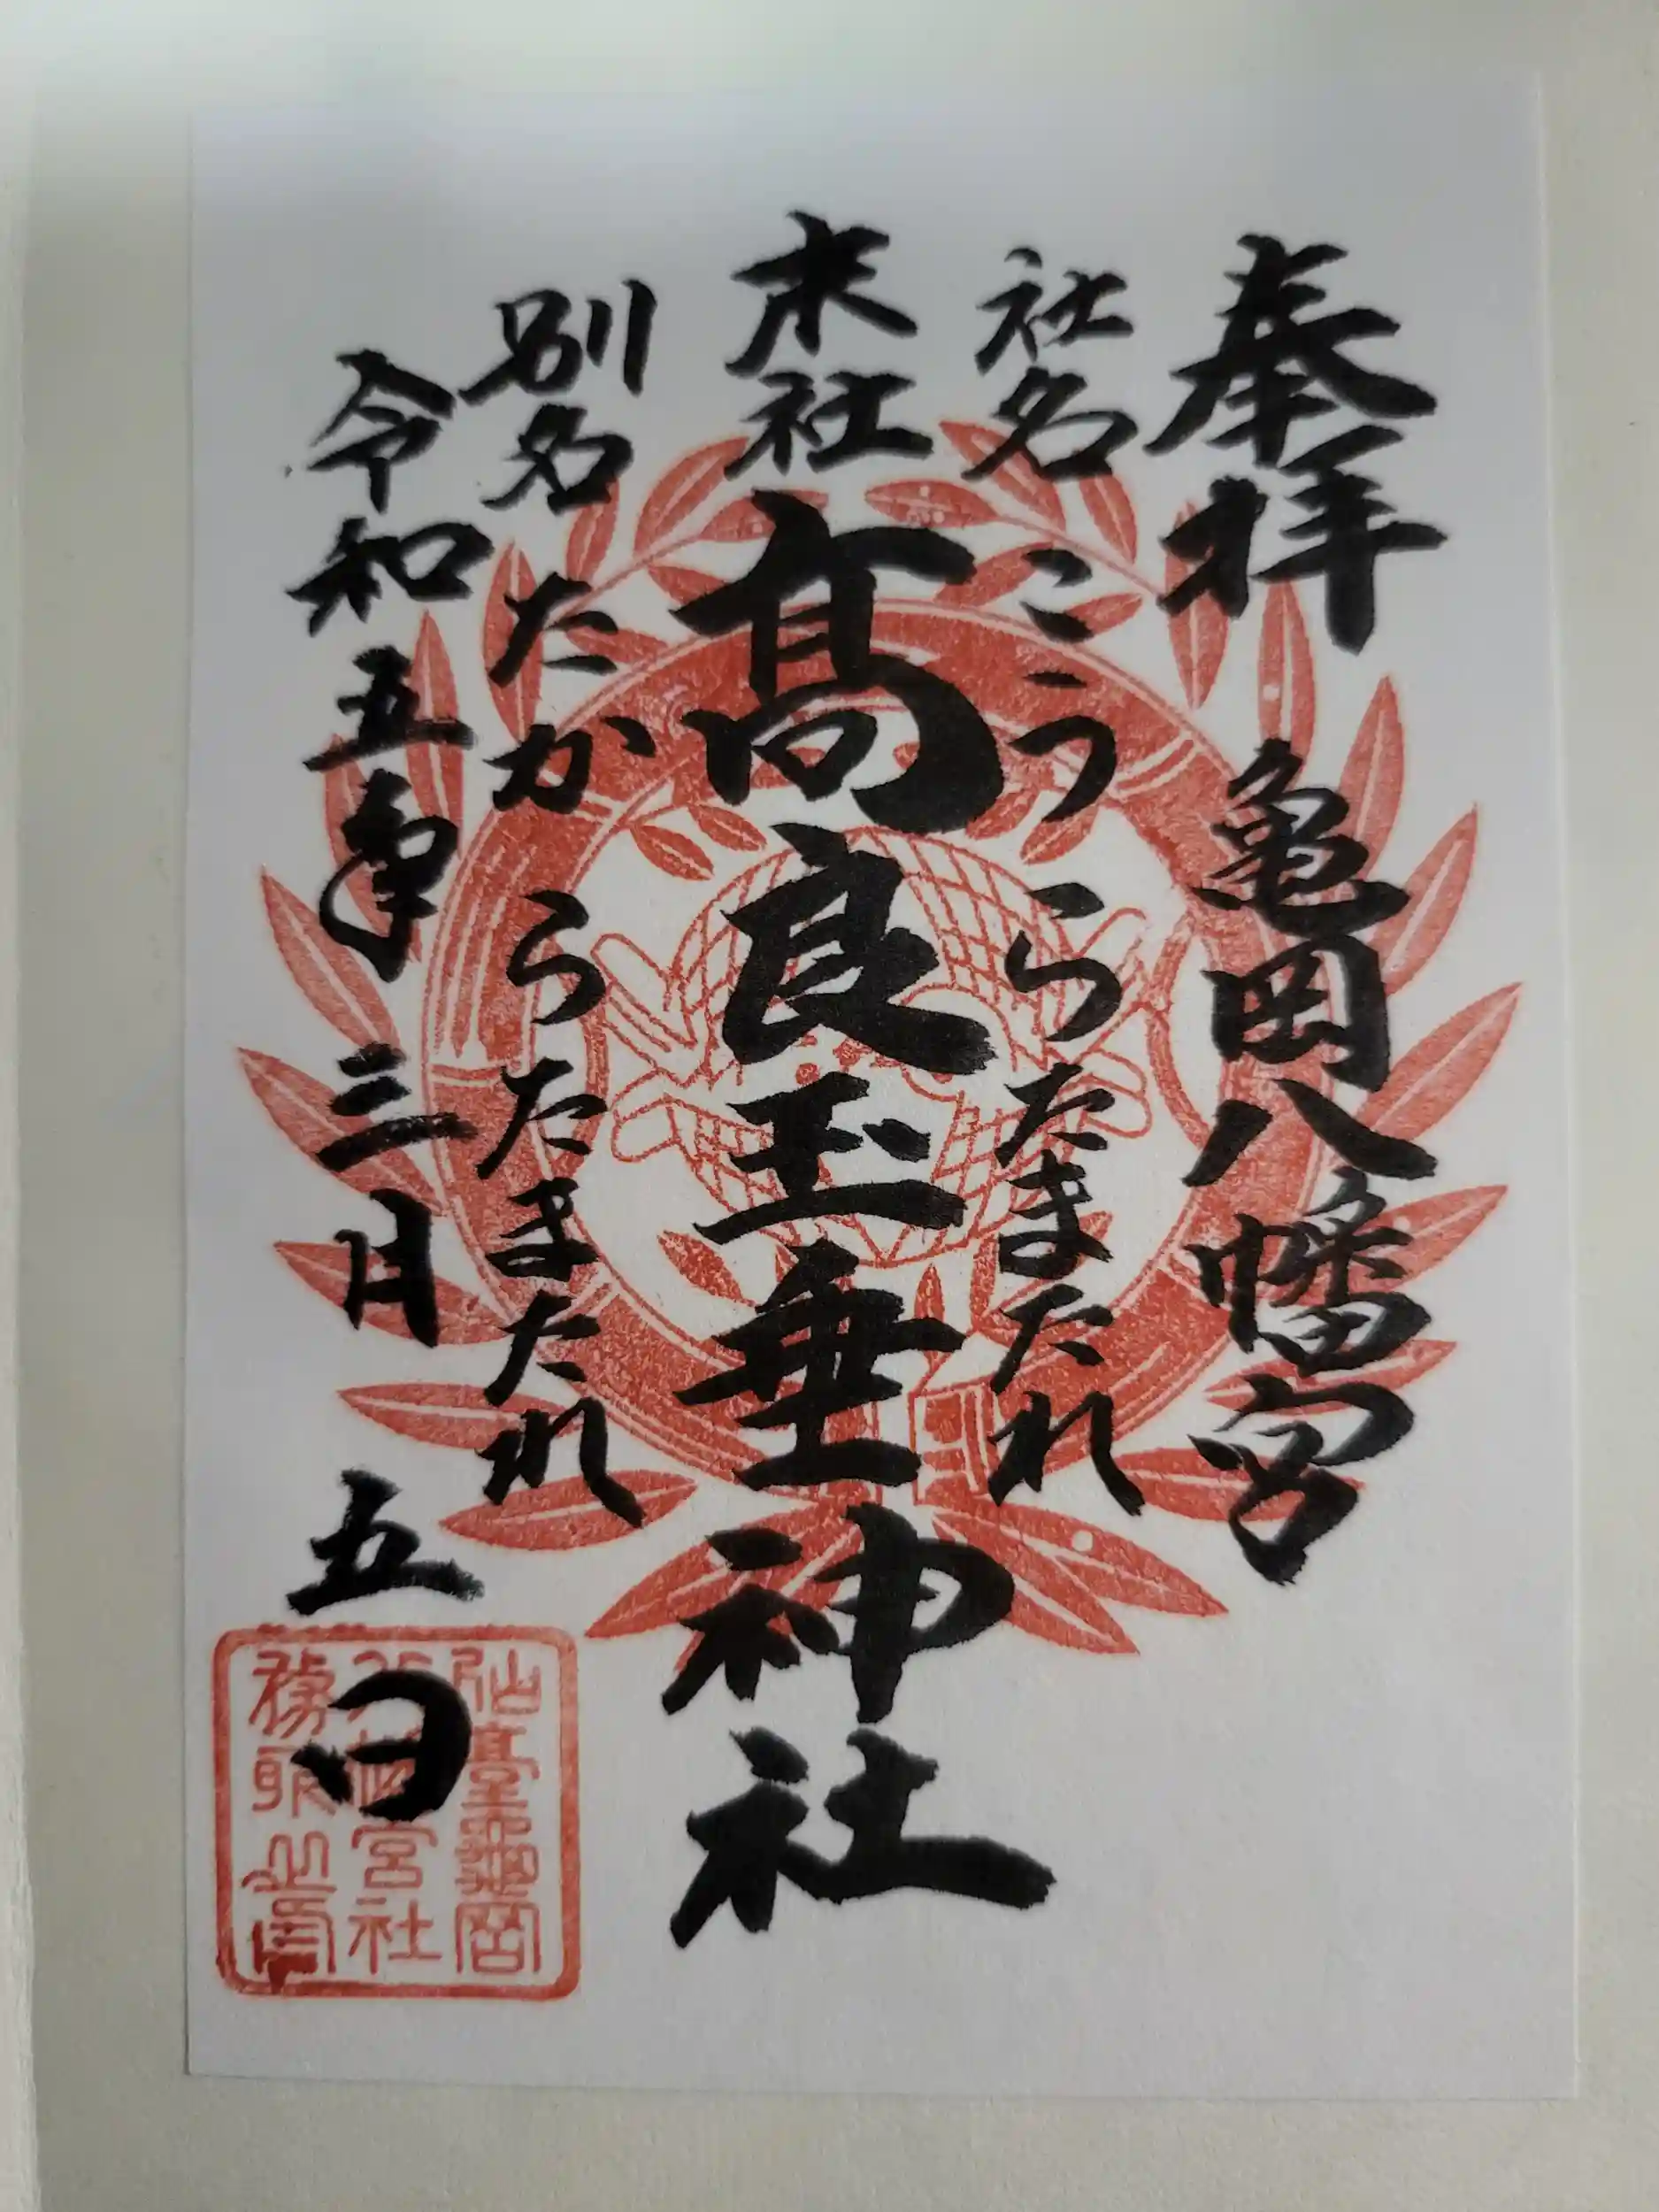 奉拝 亀岡八幡宮
社名 こうらたまたれ
末社 髙良玉垂神社
別名 たからたまたれ
令和五年 三月 五日
仙臺亀岡
八幡宮社
務所之印